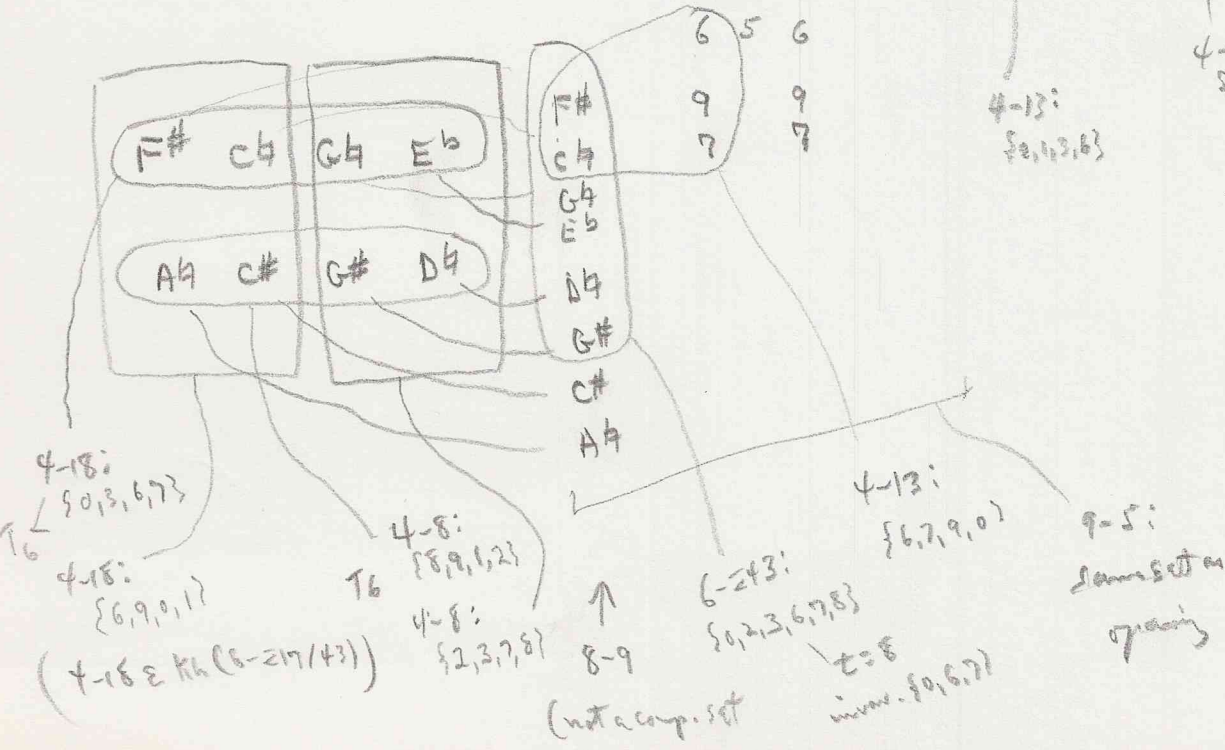 6 5 6
F# 9 9
C♮ 7 7
F# C♮ G♮ E♭
G♮
E♭
A♮ C# G# D♮
D♮
G#
C#
A♮
4-
4-13:
4-18:
{0,3,6,7}
T6
4-18:
{6,9,0,1}
(4-18 ε Kh(6-Z17/43))
4-8:
{8,9,1,2}
T6
4-8:
{2,3,7,8}
↑
8-9
(not a comp. set
6-Z43:
{0,2,3,6,7,8}
t=8
invar. {0,6,7}
4-13:
{6,7,9,0}
9-5:
same set as
opening